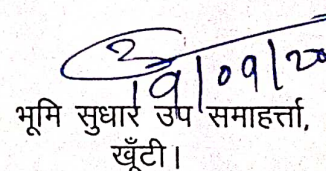 19/09/20
भूमि सुधार उप समाहर्त्ता,
खूँटी।